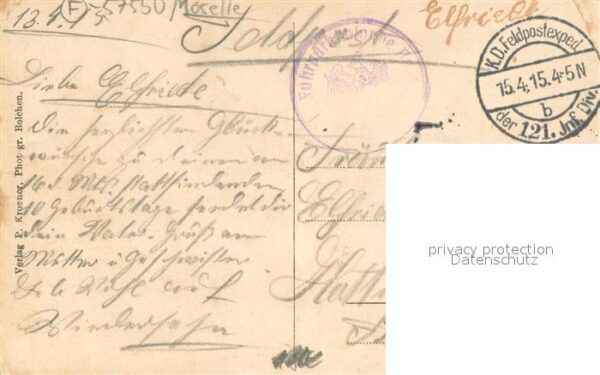 13.4.15
(F)-57550/Moselle
Feldpost
Elfriede
K.D. Feldpostexped.
15.4.15.4-5N
b
der 121. Inf. Div.
Liebe Elfriede
Die herzlichsten Glück-
wünsche zu deinem am
16 d. Mts. stattfindenden
10 Geburtstage sendet dir
dein Vater. Gruß an
Mutter u Geschwister
Lebe Wohl auf
Wiedersehn
Verlag P. Kroener, Phot-gr. Bolchen.
Elfriede
privacy protection
Datenschutz